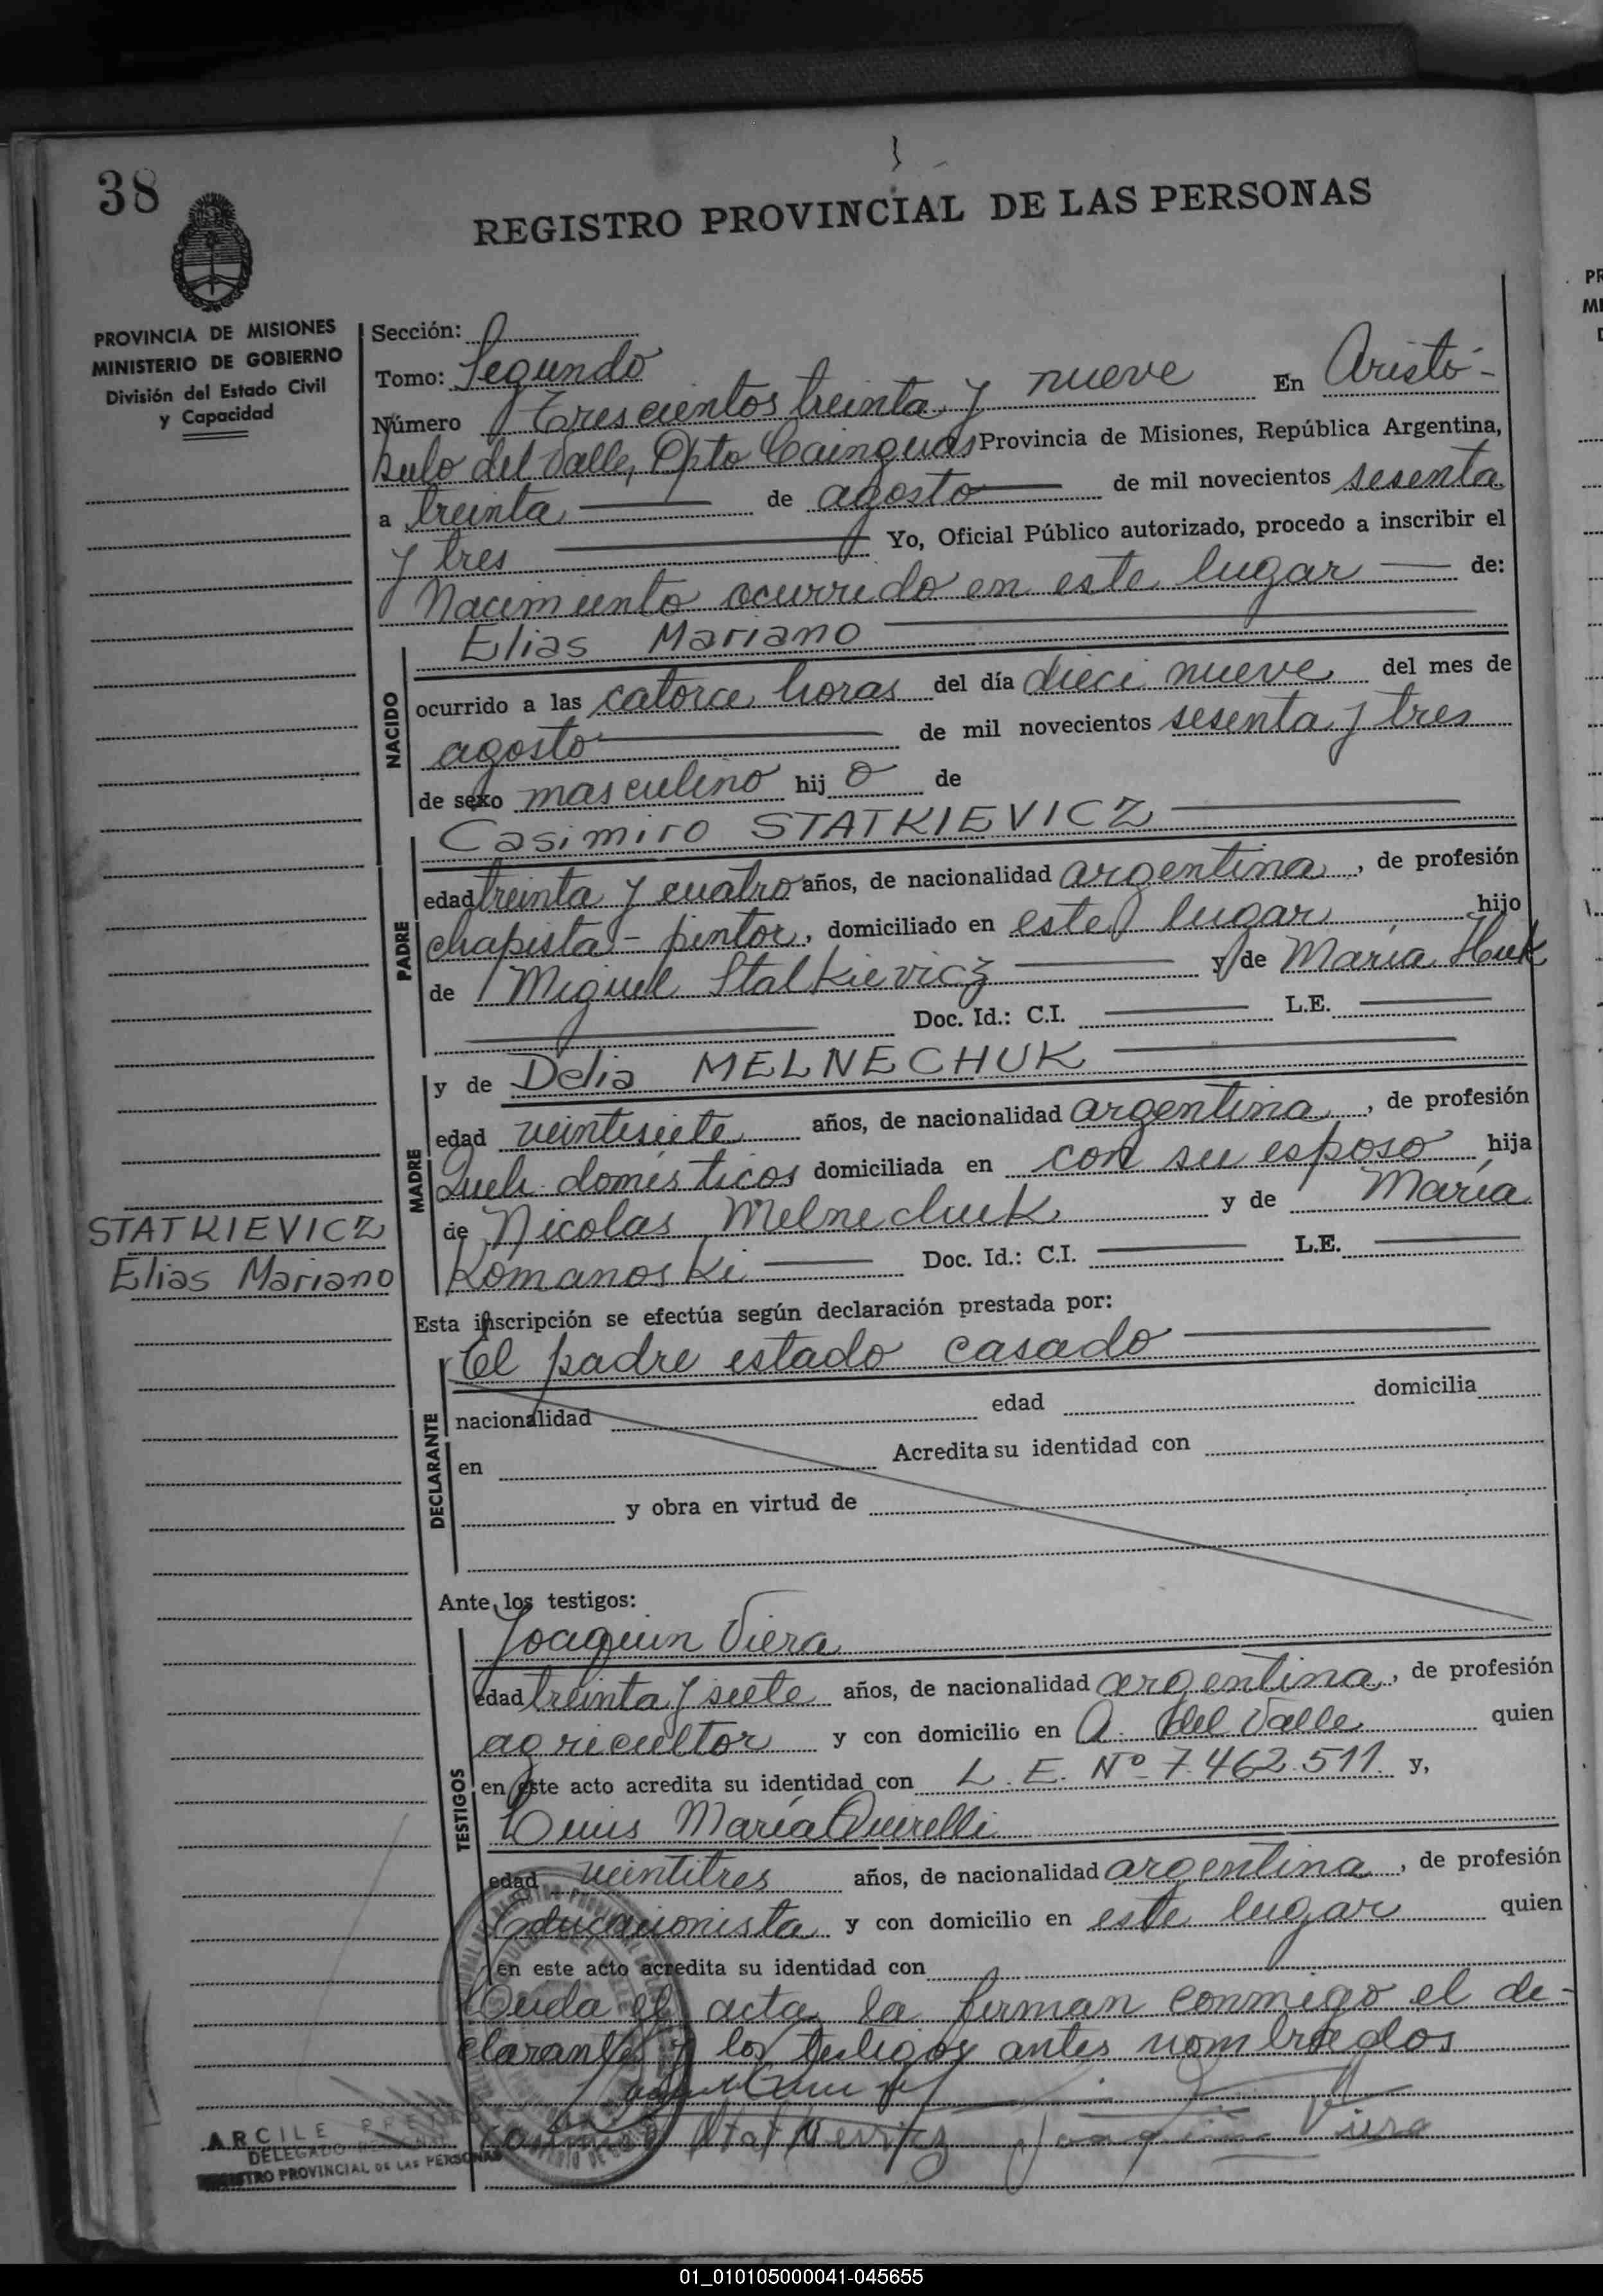 38
REGISTRO PROVINCIAL DE LAS PERSONAS
PROVINCIA DE MISIONES
MINISTERIO DE GOBIERNO
División del Estado Civil
y Capacidad
Sección:
Tomo: Segundo
Número Trescientos treinta y nueve En Aristó-
bulo del Valle, Dpto Cainguas Provincia de Misiones, República Argentina,
a treinta de agosto de mil novecientos sesenta
y tres Yo, Oficial Público autorizado, procedo a inscribir el
Nacimiento ocurrido en este lugar de:
NACIDO
Elias Mariano
ocurrido a las catorce horas del día dieci nueve del mes de
agosto de mil novecientos sesenta y tres
de sexo masculino hij o de
PADRE
Casimiro STATKIEVICZ
edad treinta y cuatro años, de nacionalidad argentina, de profesión
chapista - pintor, domiciliado en este lugar hijo
de Miguel Statkievicz y de María Huk
Doc. Id.: C.I. L.E.
MADRE
y de Delia MELNECHUK
edad veintisiete años, de nacionalidad argentina, de profesión
Queh. domésticos domiciliada en con su esposo hija
de Nicolas Melnechuk y de María
Romanoski Doc. Id.: C.I. L.E.
STATKIEVICZ
Elias Mariano
Esta inscripción se efectúa según declaración prestada por:
DECLARANTE
El padre estado casado
nacionalidad edad domicilia
en Acredita su identidad con
y obra en virtud de
Ante los testigos:
TESTIGOS
Joaquin Viera
edad treinta y siete años, de nacionalidad argentina, de profesión
agricultor y con domicilio en A. del Valle quien
en este acto acredita su identidad con L. E. Nº 7.462.511 y,
Luis María Quirelli
edad veintitres años, de nacionalidad argentina, de profesión
Educacionista y con domicilio en este lugar quien
en este acto acredita su identidad con
Leida el acta, la firman conmigo el de-
clarante y los testigos antes nombrados
Casimiro Statkievicz Joaquin Viera
ARCILE
DELEGADO
REGISTRO PROVINCIAL DE LAS PERSONAS
01_010105000041-045655